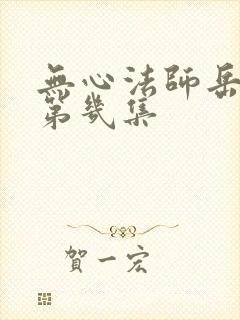 無心法師岳
第幾集
賀一宏